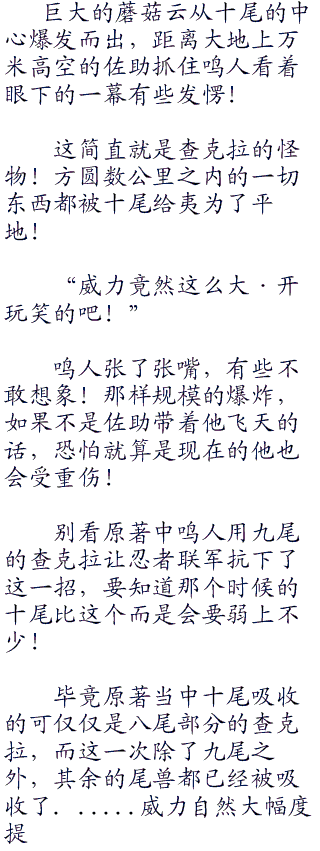 巨大的蘑菇云从十尾的中
心爆发而出，距离大地上万
米高空的佐助抓住鸣人看着
眼下的一幕有些发愣！
这简直就是查克拉的怪
物！方圆数公里之内的一切
东西都被十尾给夷为了平
地！
“威力竟然这么大·开
玩笑的吧！”
鸣人张了张嘴，有些不
敢想象！那样规模的爆炸，
如果不是佐助带着他飞天的
话，恐怕就算是现在的他也
会受重伤！
别看原著中鸣人用九尾
的查克拉让忍者联军抗下了
这一招，要知道那个时候的
十尾比这个而是会要弱上不
少！
毕竟原著当中十尾吸收
的可仅仅是八尾部分的查克
拉，而这一次除了九尾之
外，其余的尾兽都已经被吸
收了．．．．．．威力自然大幅度
提